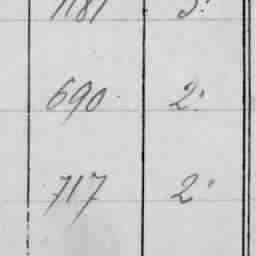 1181 3:
690 2:
717 2: